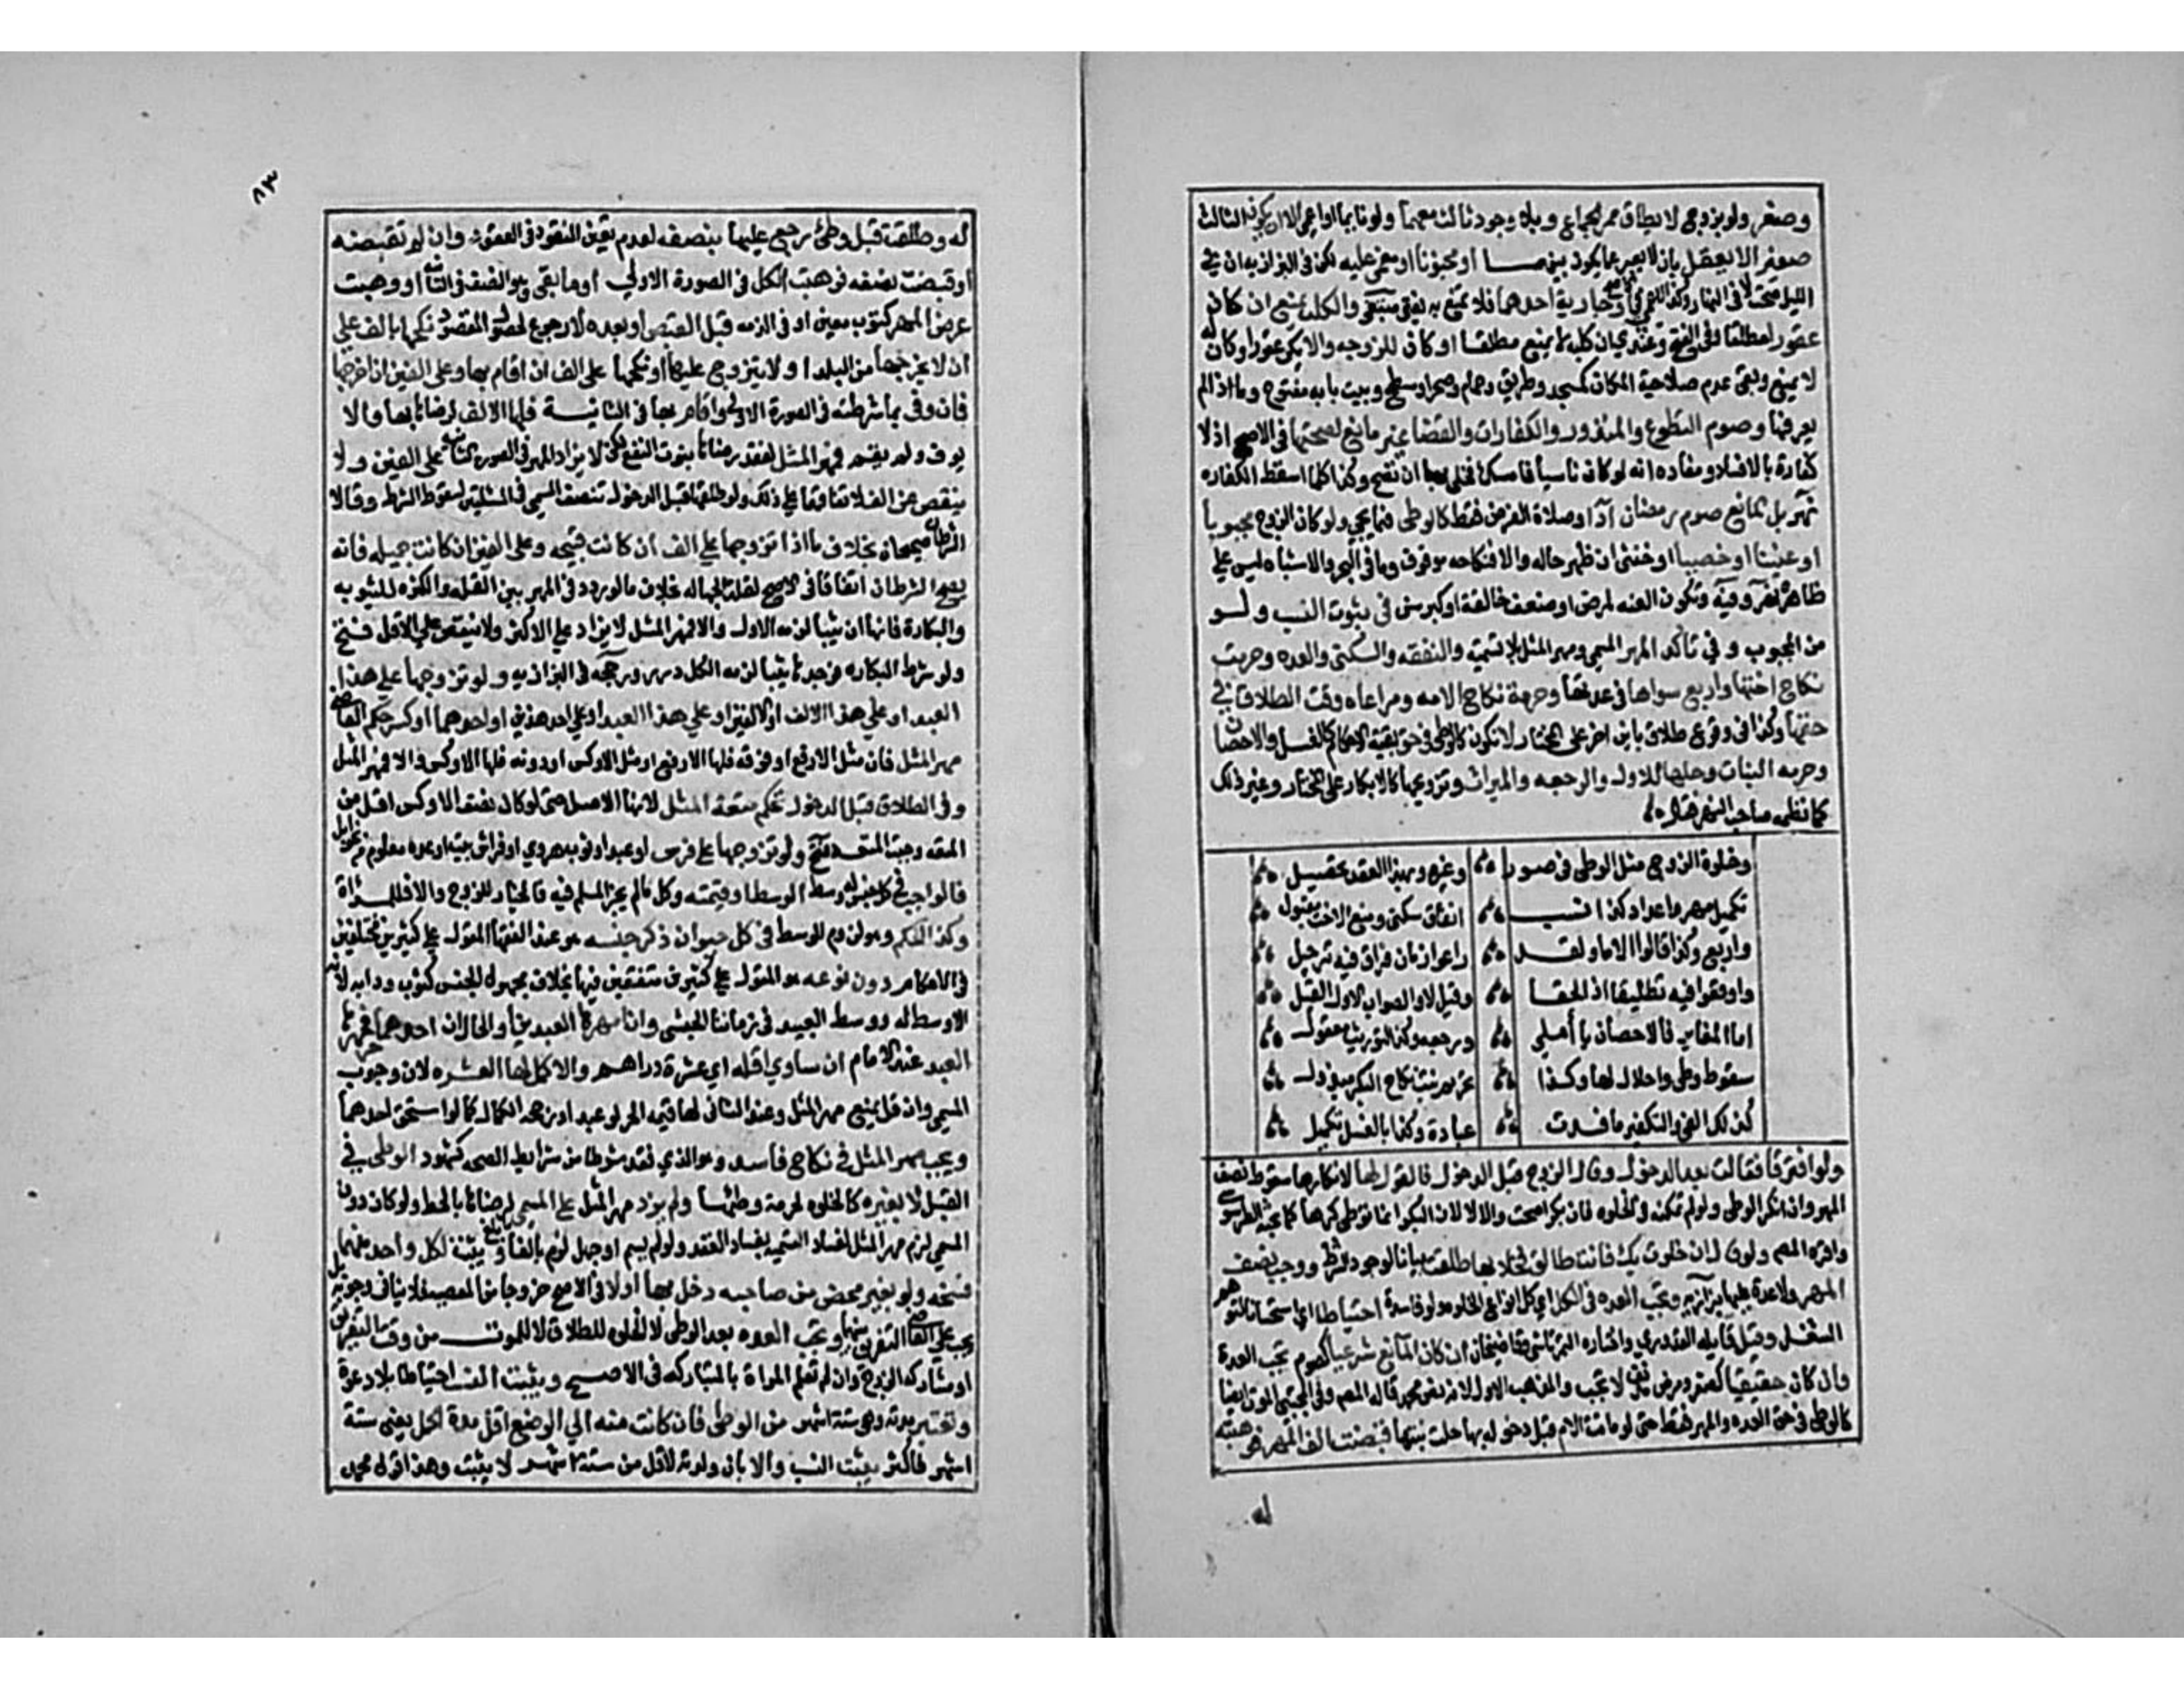 وصغر ولو بزوج لا يطاق معه الجماع وبلا وجود ثالث معهما ولو نائما او اعمى الا ان يكون الثالث
صغيرا لا يعقل بان لا يعبر عما يكون بينهما او مجنونا او مغمى عليه لكن في البزازيه ان في
الليل صحت لا في النهار وكذا الاعمى في الاصح او جارية احدهما فلا تمنع به يفتى مبتغى والكلب يمنع ان كان
عقورا مطلقا وفي الفتح وعندي ان كلبه لا يمنع مطلقا او كان للزوجه والا يكن عقورا وكان له
لا يمنع وبقى عدم صلاحية المكان كمسجد وطريق وحمام وصحرا وسطح وبيت بابه مفتوح وما اذا لم
يعرفها وصوم التطوع والمنذور والكفارات والقضا غير مانع لصحتها في الاصح اذ لا
كفارة بالافساد ومفاده انه لو كان ناسيا فامسك فخلى بها ان تصح وكذا كلما اسقط الكفاره
نهر بل المانع صوم رمضان ادآ وصلاة الفرض فقط كالوطى فيما يجي ولو كان الزوج مجبوبا
او عنينا او خصيا او خنثى ان ظهر حاله والا فنكاحه موقوف وما في البحر والاشباه ليس على
ظاهره نهر وفيه وتكون العنه لمرض او ضعف خالقة او كبر سن في ثبوت النسب ولو
من المجبوب وفي تاكد المهر المسمى ومهر المثل بلا تسميه والنفقه والسكنى والعده وحرمة
نكاح اختها واربع سواها في عدتها وحرمة نكاح الامه ومراعاة وقت الطلاق في
حقها وكذا في وقوع طلاق باين اخر على المختار لا تكون كالوطى في حق بقية الاحكام كالغسل والاحصان
وحرمه البنات وحلها للاول والرجعه والميراث وتزويجها كالابكار على المختار وغير ذلك
كما نظمه صاحب النهر فقال
وخلوة الزوج مثل الوطى في صور وغيره وبهذا العقد تحصيل
تكميل مهر واعداد كذا نسب انفاق سكنى ومنع الاخت مقبول
واربع وكذا قالوا الاما ولقد راعوا زمان فراق فيه ترحيل
واوقعوا فيه تطليقا اذا لحقا وقيل لا والصواب الاول القيل
اما المغاير فالاحصان يا أملي ورجعه وكذا التوريث معقول
سقوط وطى واحلال لها وكذا تحريم بنت نكاح البكر مبذول
كذلك الفي والتكفير ما فسدت عبادة وكذا بالغسل تكميل
ولو افترقا فقالت بعد الدخول وقال الزوج قبل الدخول فالقول لها لانكارها سقوط نصف
المهر وان انكر الوطى ولو لم تمكنه في الخلوه فان بكرا صحت والا لا لان البكر انما توطى كرها كما بحثه الطرسوسي
واقره المصنف ولو قال ان خلوت بك فانت طالق فخلا بها طلقت باينا لوجود الشرط ووجب نصف
المهر ولا عدة عليها بزازيه وتجب العده في الكل اي كل انواع الخلوه ولو فاسدة احتياطا اي استحسانا لتوهم
الشغل وقيل قايله القدوري واختاره التمرتاشي وقاضيخان ان كان المانع شرعيا كصوم تجب العدة
وان كان حقيقيا كصغر ومرض مدنف لا تجب والمذهب الاول لانه نص محمد قاله المصنف وفي المجتبى الموت ايضا
كالوطى في حق العده والمهر فقط حتى لو ماتت الام قبل دخوله بها حلت بنتها قبضت الف المهر فوهبته
له
٨٣
له وطلقت قبل وطئ رجع عليها بنصفه لعدم تعين النقود في العقود وان لم تقبضه
او قبضت نصفه فوهبت الكل في الصورة الاولى او ما بقي وهو النصف في الثانية او وهبت
عرض المهر كثوب معين او في الذمه قبل القبض او بعده لا رجوع لحصول المقصود نكحها بالف على
ان لا يخرجها من البلد او لا يتزوج عليها او نكحها على الف ان اقام بها وعلى الفين ان اخرجها
فان وفى بما شرطته في الصورة الاولى واقام بها في الثانية فلها الالف لرضاها بها والا
يوف ولم يقم فمهر المثل لفقد رضاها بفوت النفع لكن لا يزاد المهر في الصورة الثانية على الفين ولا
ينقص عن الف لاتفاقهما على ذلك ولو طلقها قبل الدخول تنصف المسمى في المسئلتين لسقوط الشرط وقالا
الشرطان صحيحان بخلاف ما اذا تزوجها على الف ان كانت قبيحه وعلى الفين ان كانت جميله فانه
يصح الشرطان اتفاقا في الاصح لقلة الجهاله بخلاف ما لو ردد في المهر بين القله والكثره للثيوبه
والبكارة فانها ان ثيبا لزمه الاول والا فمهر المثل لا يزاد على الاكثر ولا ينقص على الاقل فتح
ولو شرط البكاره فوجدها ثيبا لزمه الكل درر ورجحه في البزازيه ولو تزوجها على هذا
العبد او على هذا الالف او الالفين او على هذا العبد او على احد هذين او احدهما اوكس حكم القاضي
مهر المثل فان مثل الارفع او فوقه فلها الارفع او مثل الاوكس او دونه فلها الاوكس والا فمهر المثل
وفي الطلاق قبل الدخول تحكم متعة المثل لانها الاصل حتى لو كان نصف الاوكس اقل من
المتعه وجبت المتعه فتح ولو تزوجها على فرس او عبد او ثوب هروي او فراش بيت او عدد معلوم من نحو ابل
فالواجب في كل جنس له وسط الوسط او قيمته وكل ما لم يجز السلم فيه فالخيار للزوج والا فللمراة
وكذا الحكم وهو لزوم الوسط في كل حيوان ذكر جنسه هو عند الفقها المقول على كثيرين مختلفين
في الاحكام دون نوعه هو المقول على كثيرين متفقين فيها بخلاف مجهول الجنس كثوب ودابه لانه
لا وسط له ووسط العبيد في زماننا الحبشي وان امهرها العبدين والحال ان احدهما حر فمهرها
العبد عند الامام ان ساوى اقله اي عشرة دراهم والا كمل لها العشره لان وجوب
المسمى وان قل يمنع مهر المثل وعند الثاني لها قيمه الحر لو عبدا ورجحه الكمال كما لو استحق احدهما
ويجب مهر المثل في نكاح فاسد وهو الذي فقد شرطا من شرايط الصحه كشهود الوطى في
القبل لا بغيره كالخلوه لحرمة وطئها ولم يزد مهر المثل على المسمى لرضاها بالحط ولو كان دون
المسمى لزم مهر المثل لفساد التسميه بفساد العقد ولو لم يسم او جهل لزم بالغا ما بلغ ويثبت لكل واحد منهما
فسخه ولو بغير محضر من صاحبه دخل بها او لا في الاصح خروجا من المعصيه فلا ينافي وجوبه بل
يجب على القاضي التفريق بينهما وتجب العده بعد الوطى لا الخلوه للطلاق لا للموت من وقت التفريق
او متاركة الزوج وان لم تعلم المراة بالمتاركه في الاصح ويثبت النسب احتياطا بلا دعوة
وتعتبر مدته وهي ستة اشهر من الوطى فان كانت منه الى الوضع اقل مدة الحمل يعني ستة
اشهر فاكثر يثبت النسب والا بان ولدته لاقل من ستة اشهر لا يثبت وهذا قول محمد